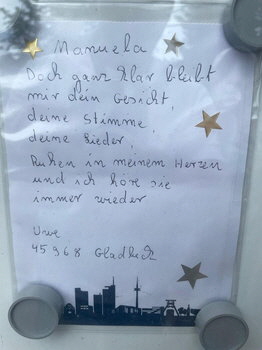 Manuela
Doch ganz klar bleibt
mir dein Gesicht,
deine Stimme,
deine Lieder,
Ruhen in meinem Herzen
und ich höre sie
immer wieder
Uwe
45968 Gladbeck